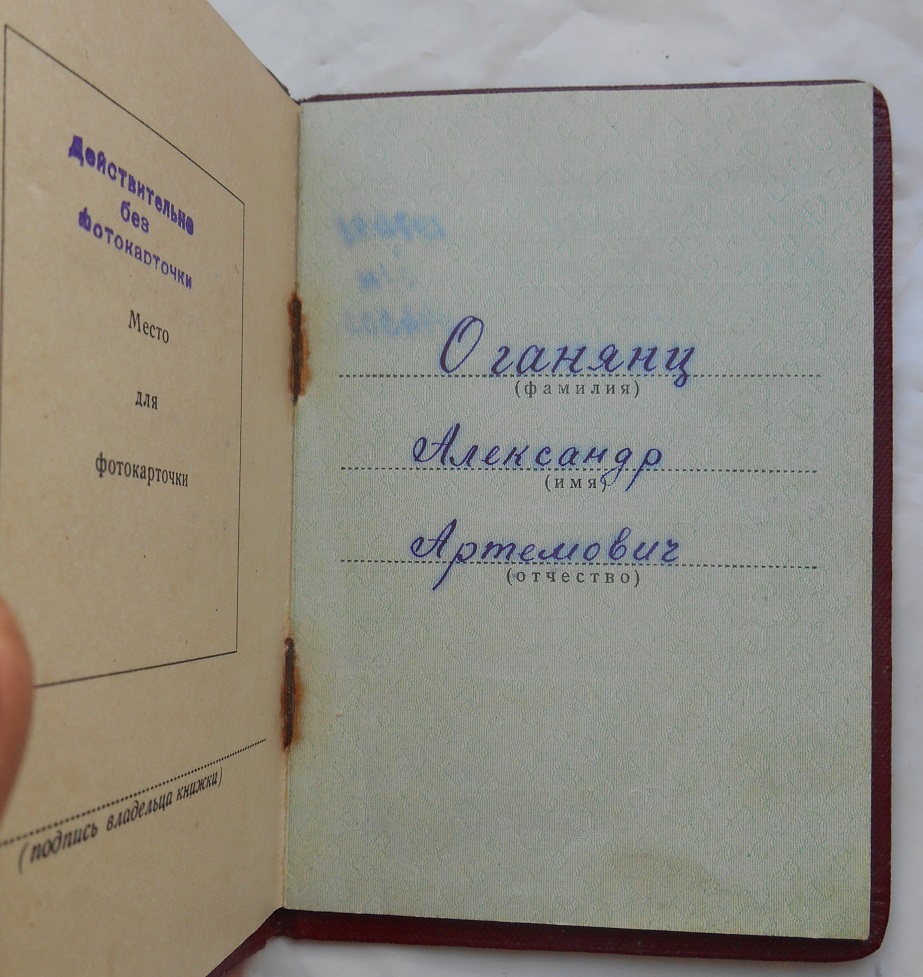 Действительно
без
фотокарточки
Место
для
фотокарточки
(подпись владельца книжки)
Оганянц
(фамилия)
Александр
(имя)
Артемович
(отчество)